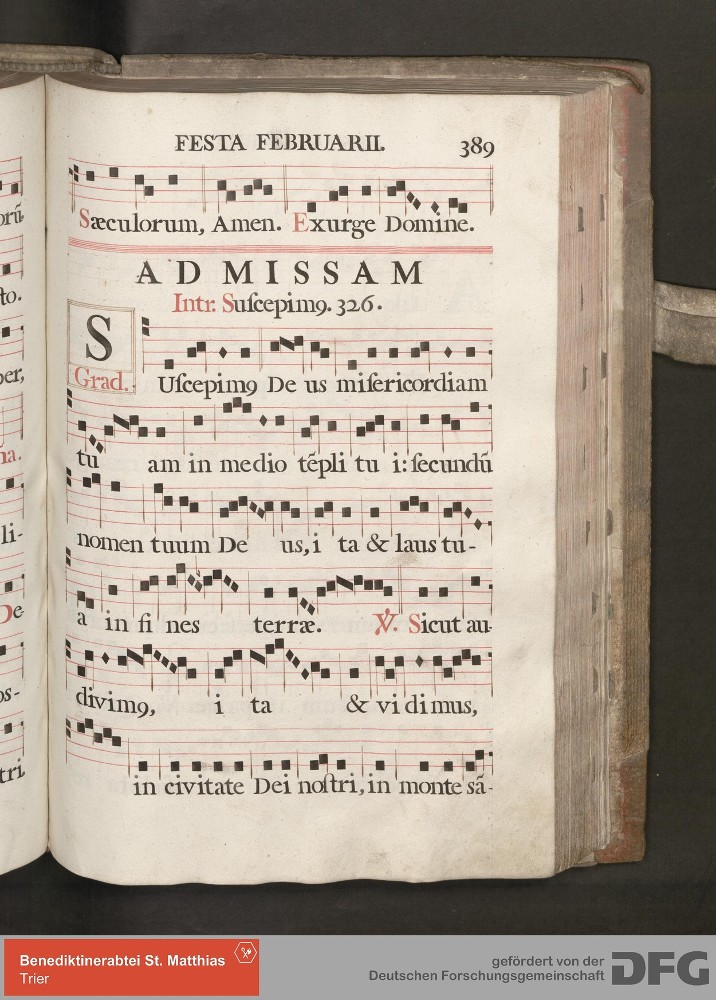 FESTA FEBRUARII. 389
Sæculorum, Amen. Exurge Domine.
AD MISSAM
Intr. Suſcepimꝯ. 326.
S
Grad. Uſcepimꝯ De us miſericordiam
tu am in medio tẽpli tu i: ſecundũ
nomen tuum De us, i ta & laus tu-
a in fi nes terræ. ℣. Sicut au-
divimꝯ, i ta & vidimus,
in civitate Dei noſtri, in monte sã-
orũ
to.
per,
na.
li-
De
os-
tri,
Benediktinerabtei St. Matthias
Trier
gefördert von der
Deutschen Forschungsgemeinschaft DFG